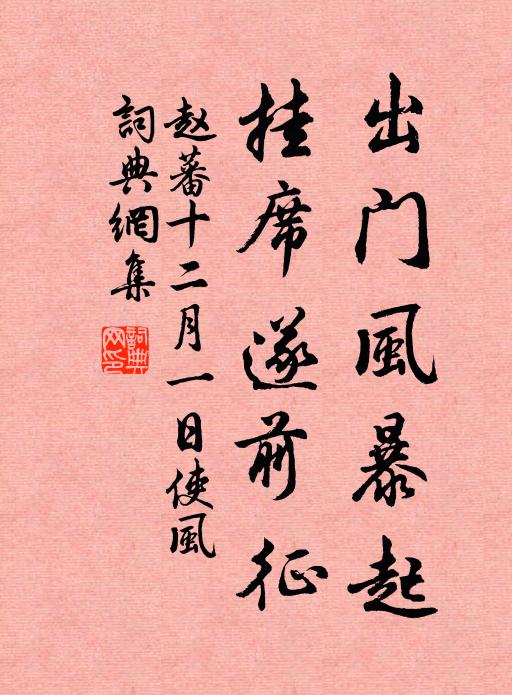 出门風暴起
挂席遂前征
赵蕃十二月一日使風
詞典網集
詞典网印